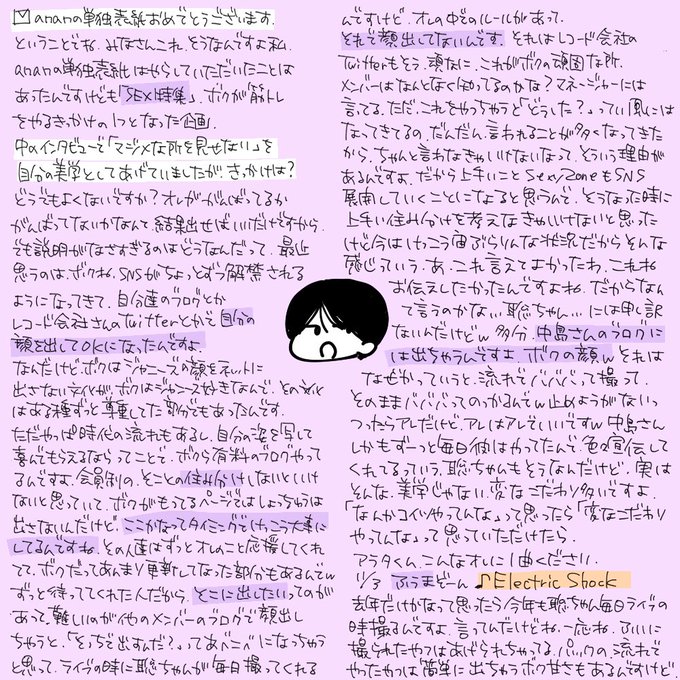 ananの単独表紙おめでとうございます.
ということでね.みなさんこれ.そうなんですよ私.
ananの単独表紙はやらしていただいたことは
あったんですけども「SEXY特集」.ボクが筋トレ
をやるきっかけの1つとなった企画.
中のインタビューで「マジメな所を見せない」を
自分の美学としてあげていましたが、きっかけは?
どうでもよくないですか?オレががんばってるか
がんばってないかなんて.結果出せばいいだけですから.
でも説明がなさすぎるのはどうなんだって.最近
思うのは、ボクね.SNSがちょっとずつ解禁される
ようになってきて.自分達のブログとか
レコード会社さんのTwitterとかで.自分の
顔を出してOKになったんですよ
なんだけど.ボクはジャニーズの顔をネットに
出さない文化が.ボクはジャニーズ好きなんで.その文化
はある種ずっと尊重してた部分でもあったんです.
ただやっぱ時代の流れもあるし.自分の姿を写して
喜んでもらえるならってことで.ボクら有料のブログやって
るんですよ.会員制の.そことの住み分けしないといけ
ないと思っていて.ボクがもってるページではしょっちゅうは
出さないんだけど.ここかなってタイミングでけっこう大事に
してるんですね.その人達はずっとオレのこと応援してくれ
てて.ボクだってあんまり更新してなった部分もあるんでw
ずっと待っててくれた人だから.そこに出したいってのが
あって.難しいのが他のメンバーのブログで顔出し
ちゃうと.「そっちで出すんだ?」ってあべこべになっちゃう
と思って.ライブの時に聡ちゃんが毎日撮ってくれる
んですけど.オレの中でのルールがあって.
それで顔出してないんです.それはレコード会社の
Twitterもそう.頑なに.これがボクの頑固な所.
メンバーはなんとなく知ってるのかな?マネージャーには
言ってる.ただ.これをやっちゃうと「どうした?」っていう風には
なってきてるの.だんだん.言われることが多くなってきた
から.ちゃんと言わなきゃいけないなって.そういう理由が
あるんですよ.だから上手いことSexyZoneもSNS
展開していくことになると思うんで.そうなった時に
上手い住み分けを考えなきゃいけないと思った
けど今はけっこう宙ぶらりんな状況だからそんな
感じでいう.あ.これ言えてよかったわ.これね
お伝えしたかったんですよね.だからなん
て言うのかな…聡ちゃん…には申し訳
ないんだけどw多分.中島さんのブログに
は出ちゃうんですよ.ボクの顔w それは
なぜかっていうと.流れでババババって撮って.
そのままババババってのっかるんでw止めようがないっ
つったらアレだけど.アレはアレでいいですw中島さん
しかもずーっと毎日彼はやってんで.色々宣伝して
くれてるっていう.聡ちゃんもそうなんだけど.実は
そんな.美学じゃない.変なこだわり多いですよ.
「なんかコイツやってんなぁ」って思ったら「変なこだわり
やってんなぁ」って思っていただけたら.
アラタくん.こんなオレに1曲ください.
11/3 ふうまどーん ♪Electric Shock
去年だけかなって思ったら今年も聡ちゃん毎日ライブの
時撮るんですよ.言ってんだけどね.一応ね.ふいに
撮られたやつはあげられちゃってる.パックの流れで
やったやつは簡単に出ちゃうボク甘さもあるんですけど.